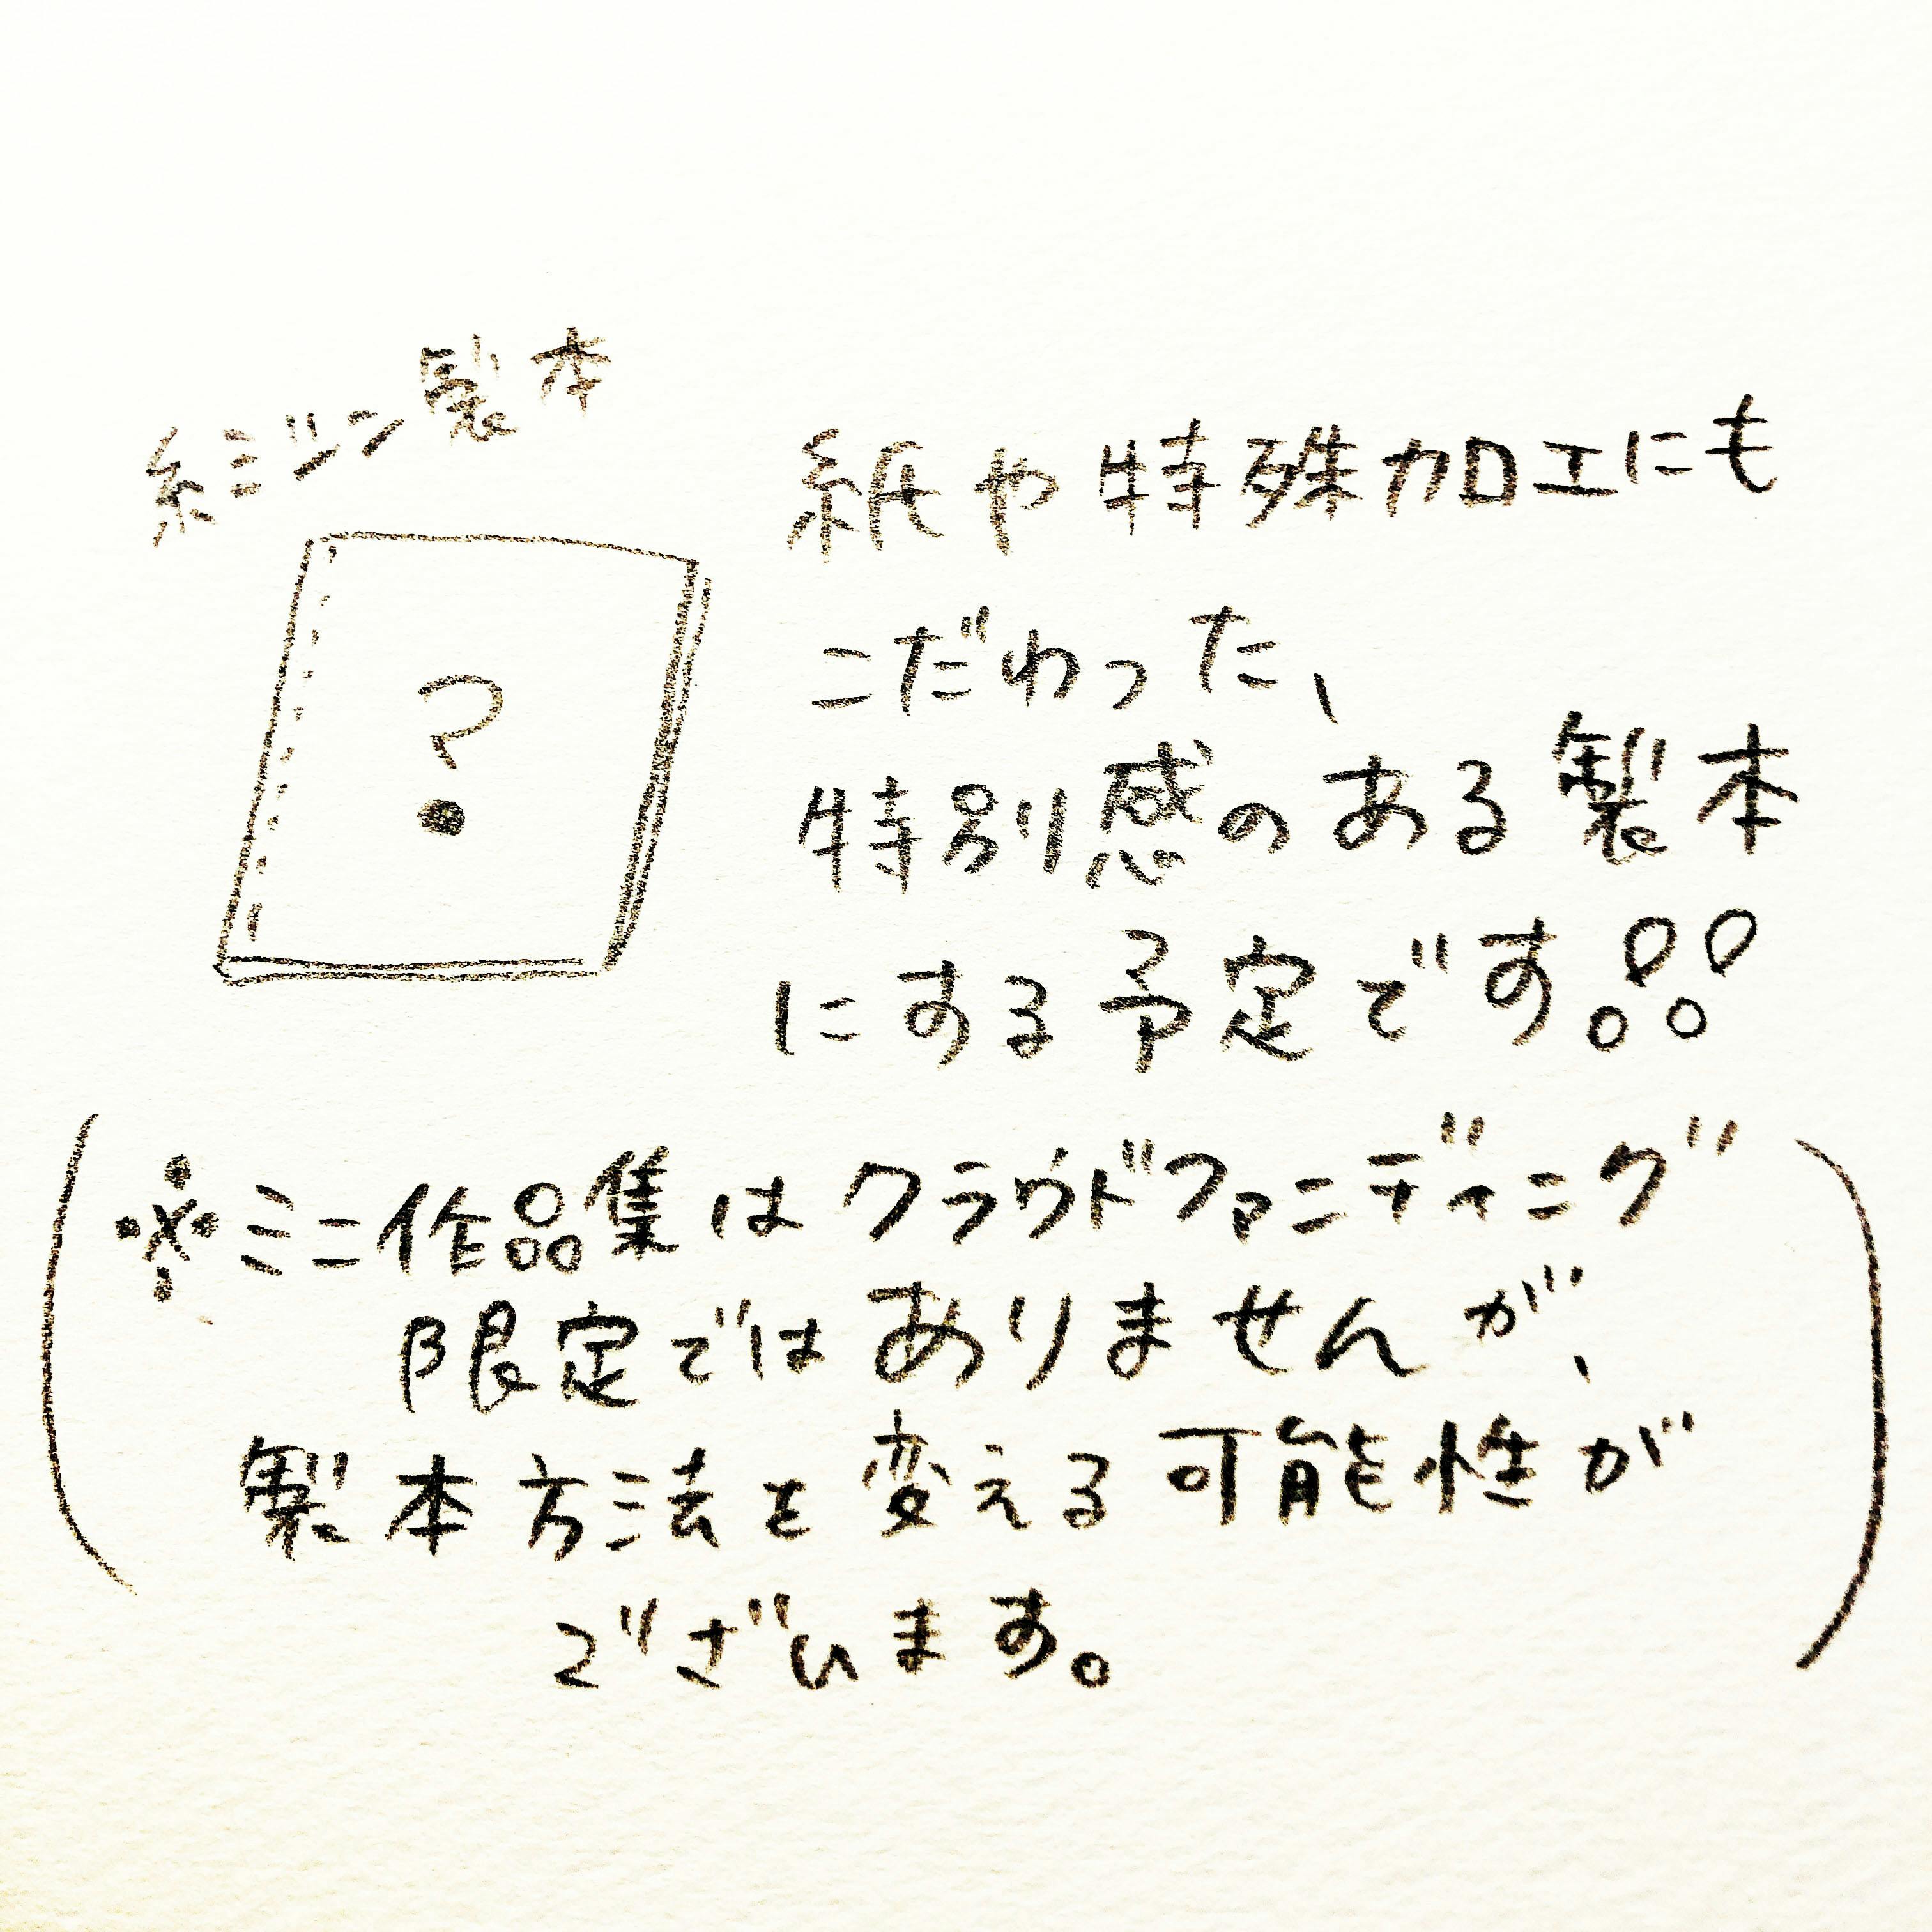 糸ミシン製本
?
紙や特殊加工にも
こだわった、
特別感のある製本
にする予定です!!
(※ミニ作品集はクラウドファンディング
限定ではありませんが、
製本方法を変える可能性が
ございます。)